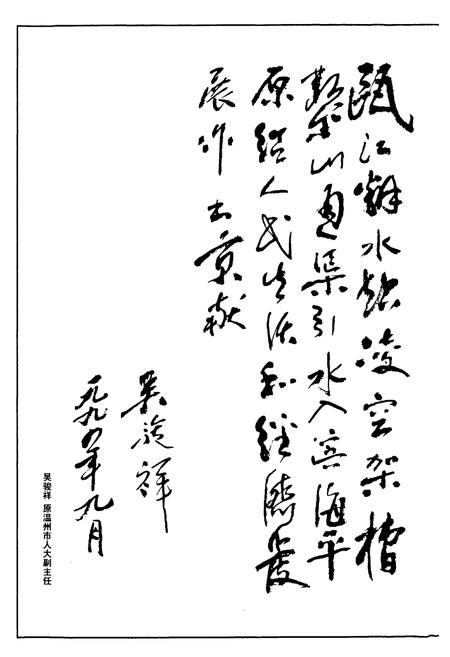 瓯江翻水站凌空架槽
凿山通渠引水入滨海平
原给人民生活和经济发
展作出贡献
吴骏祥
一九九四年九月
吴骏祥 原温州市人大副主任